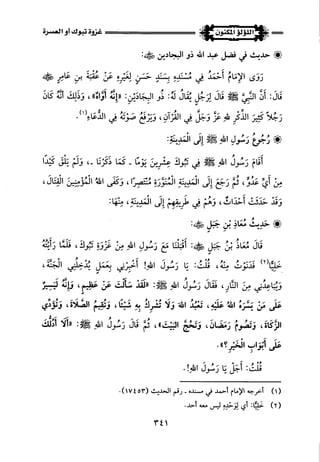 اللؤلؤ المكنون
غزوة تبوك أو العسرة
◉ حديث في فضل عبد الله ذو البجادين ﷺ:
روى الإمام أحمد في مسنده بسند حسن لغيره عن عقبة بن عامر ﷺ
قال: أن النبي ﷺ قال لرجل يقال له: ذو البجادين: «إنه أواه»، وذلك أنه كان
رجلا كثير الذكر لله عز وجل في القرآن، ويرفع صوته في الدعاء(١).
◉ رجوع رسول الله ﷺ إلى المدينة:
أقام رسول الله ﷺ في تبوك عشرين يوما - كما ذكرنا -، ولم يلق كيدا
من أي عدو، ثم رجع إلى المدينة المنورة منتصرا، وكفى الله المؤمنين القتال،
وقد حدثت أحداث، وهم في طريقهم إلى المدينة، منها:
◉ حديث معاذ بن جبل ﷺ:
قال معاذ بن جبل ﷺ: أقبلنا مع رسول الله ﷺ من غزوة تبوك، فلما رأيته
خليا(٢) فدنوت منه، قلت: يا رسول الله! أخبرني بعمل يدخلني الجنة،
ويباعدني من النار، فقال رسول الله ﷺ: «لقد سألت عن عظيم، وإنه ليسير
على من يسره الله عليه، تعبد الله ولا تشرك به شيئا، وتقيم الصلاة، وتؤدي
الزكاة، وتصوم رمضان، وتحج البيت»، ثم قال رسول الله ﷺ: «ألا أدلك
على أبواب الخير؟».
قلت: أجل يا رسول الله!.
(١) أخرجه الإمام أحمد في مسنده - رقم الحديث (١٧٤٥٣).
(٢) خليا: أي لوحده ليس معه أحد.
٣٤١